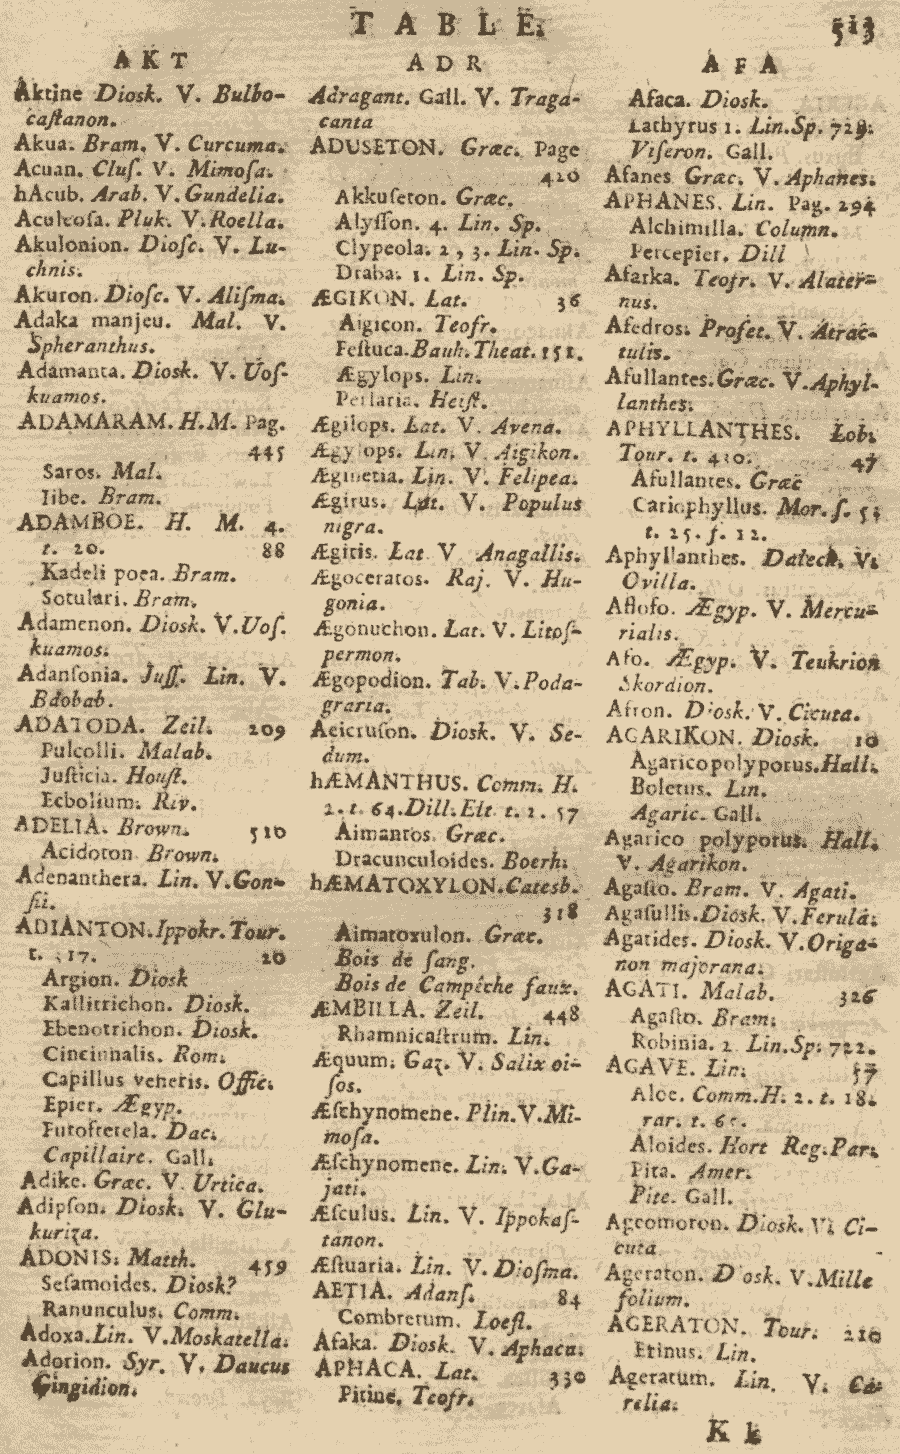 TABLE.
513
AKT
Aktine Diosk. V. Bulbo-
caſtanon.
Akua. Bram. V. Curcuma.
Acuan. Cluſ. V. Mimoſa.
hAcub. Arab. V. Gundelia.
Aculeoſa. Pluk. V. Roella.
Akulonion. Dioſc. V. Lu-
chnis.
Akuron. Dioſc. V. Aliſma.
Adaka manjeu. Mal. V.
Spheranthus.
Adamanta. Diosk. V. Uoſ-
kuamos.
ADAMARAM. H. M. Pag.
445
Saros. Mal.
Iibe. Bram.
ADAMBOE. H. M. 4.
t. 20. 88
Kadeli poea. Bram.
Sotulari. Bram.
Adamenon. Diosk. V. Uoſ.
kuamos.
Adanſonia. Juſſ. Lin. V.
Bdobab.
ADATODA. Zeil. 209
Pulcolli. Malab.
Juſticia. Houſt.
Ecbolium. Riv.
ADELIA. Brown. 510
Acidoton. Brown.
Adenanthera. Lin. V. Gon-
ſii.
ADIANTON. Ippokr. Tour.
t. 317. 20
Argion. Diosk
Kallitrichon. Diosk.
Ebenotrichon. Diosk.
Cincinnalis. Rom.
Capillus veneris. Offic.
Epier. Ægyp.
Futofretela. Dac.
Capillaire. Gall.
Adike. Græc. V. Urtica.
Adipſon. Diosk. V. Glu-
kuriza.
ADONIS. Matth. 459
Seſamoides. Diosk?
Ranunculus. Comm.
Adoxa. Lin. V. Moskatella.
Adorion. Syr. V. Daucus
Gingidion.
ADR
Adragant. Gall. V. Traga-
canta
ADUSETON. Græc. Page
420
Akkuſeton. Græc.
Alyſſon. 4. Lin. Sp.
Clypeola. 2, 3. Lin. Sp.
Draba. 1. Lin. Sp.
ÆGIKON. Lat. 36
Aigicon. Teofr.
Feſtuca. Bauh. Theat. 151.
Ægylops. Lin.
Perlaria. Heiſt.
Ægilops. Lat. V. Avena.
Ægylops. Lin. V. Aigikon.
Æginetia. Lin. V. Felipea.
Ægirus. Lat. V. Populus
nigra.
Ægitis. Lat V Anagallis.
Ægoceratos. Raj. V. Hu-
gonia.
Ægonuchon. Lat. V. Litoſ-
permon.
Ægopodion. Tab. V. Poda-
graria.
Aeicruſon. Diosk. V. Se-
dum.
hÆMANTHUS. Comm. H.
2. t. 64. Dill. Elt. t. 1. 57
Aimantos. Græc.
Dracunculoides. Boerh.
hÆMATOXYLON. Catesb.
318
Aimatoxulon. Græc.
Bois de ſang.
Bois de Campêche faux.
ÆMBILLA. Zeil. 448
Rhamnicaſtrum. Lin.
Æquum. Gaz. V. Salix oi-
ſos.
Æſchynomene. Plin. V. Mi-
moſa.
Æſchynomene. Lin. V. Ga-
jati.
Æſculus. Lin. V. Ippokaſ-
tanon.
Æſtuaria. Lin. V. Dioſma.
AETIA. Adanſ. 84
Combretum. Loefl.
Afaka. Diosk. V. Aphaca.
APHACA. Lat. 330
Pitine. Teofr.
AFA
Afaca. Diosk.
Lathyrus 1. Lin. Sp. 729.
Viſeron. Gall.
Afanes Græc. V. Aphanes.
APHANES. Lin. Pag. 294
Alchimilla. Column.
Percepier. Dill
Afarka. Teofr. V. Alater-
nus.
Afedros. Profet. V. Atrac-
tulis.
Afullantes. Græc. V. Aphyl-
lanthes.
APHYLLANTHES. Lob.
Tour. t. 430. 47
Afullantes. Græc
Cariophyllus. Mor. ſ. 5
t. 25. f. 12.
Aphyllanthes. Datech. V.
Ovilla.
Aflofo. Ægyp. V. Mercu-
rialis.
Afo. Ægyp. V. Teukrion
Skordion.
Afron. Diosk. V. Cicuta.
AGARIKON. Diosk. 10
Agaricopolyporus. Hall.
Boletus. Lin.
Agaric. Gall.
Agarico polyporus. Hall.
V. Agarikon.
Agaſto. Bram. V. Agati.
Agaſullis. Diosk. V. Ferula.
Agatides. Diosk. V. Origa-
non majorana.
AGATI. Malab. 326
Agaſto. Bram.
Robinia. 2 Lin. Sp. 722.
AGAVE. Lin. 57
Aloe. Comm. H. 2. t. 18.
rar. t.
Aloides. Hort Reg. Par.
Pita. Amer.
Pite. Gall.
Ageomoron. Diosk. V. Ci-
cuta
Ageraton. Diosk. V. Mille
folium.
AGERATON. Tour. 210
Erinus. Lin.
Ageratum. Lin. V. Ca-
relia.
K k